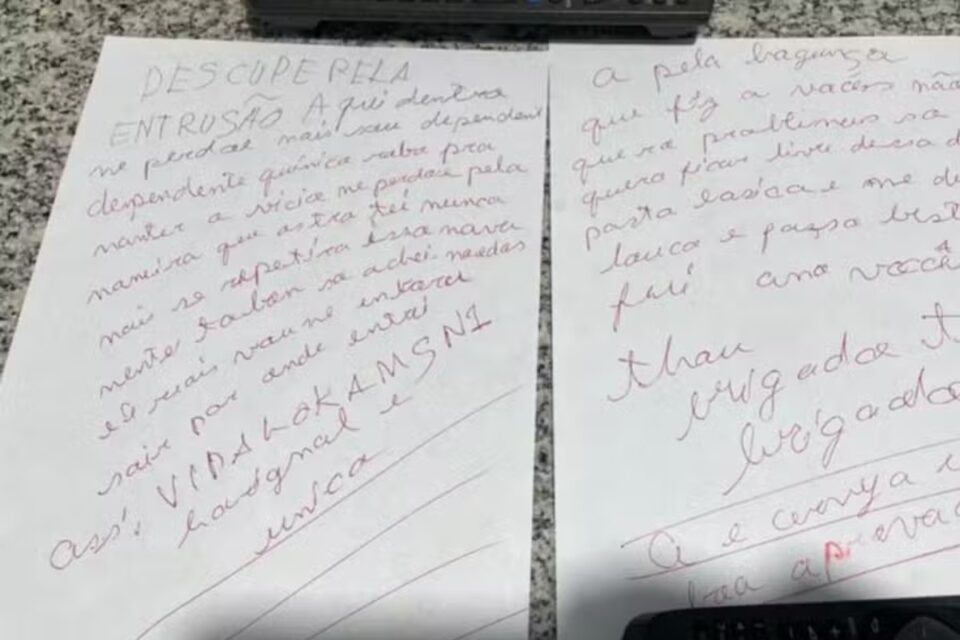 DESCUPE PELA
ENTRUSÃO Aqui dentro
me perdoe mais sou dependent
dependente química robo pra
manter o vício me perdoe pela
maneira que
mais se repetira isso nova
mente
es mais vou me
sair por onde entrei
ass: VIDALOKAMSN1
horignal e
unica
a pela bagunça
que fiz a vocês não
quero problemas so
quero ficar livre dessa d
pasta basica e me de
louca e posso
fui amo você
thau
brigadoe t
brigado
A e cerveja
boa aprovad